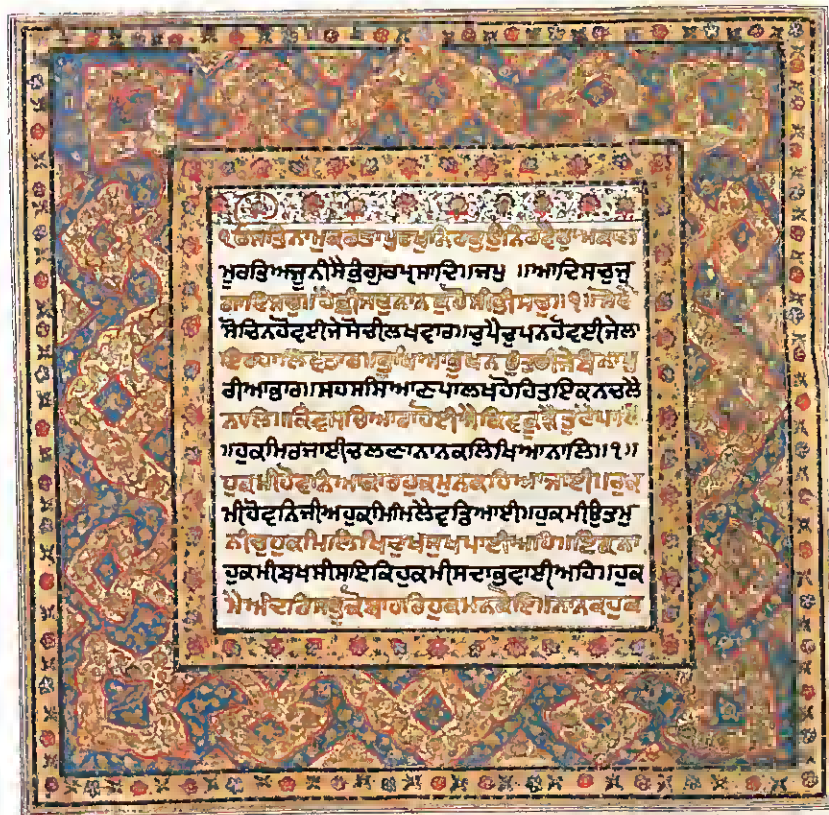 ੴਸਤਿਨਾਮੁਕਰਤਾਪੁਰਖੁਨਿਰਭਉਨਿਰਵੈਰੁਅਕਾਲ
ਮੂਰਤਿਅਜੂਨੀਸੈਭੰਗੁਰਪ੍ਰਸਾਦਿ॥ਜਪੁ ॥ਆਦਿਸਚੁਜੁ
ਗਾਦਿਸਚੁ॥ਹੈਭੀਸਚੁਨਾਨਕਹੋਸੀਭੀਸਚੁ॥੧॥ਸੋਚੈ
ਸੋਚਿਨਹੋਵਈਜੇਸੋਚੀਲਖਵਾਰ॥ਚੁਪੈਚੁਪਨਹੋਵਈਜੇਲਾ
ਇਰਹਾਲਿਵਤਾਰ॥ਭੁਖਿਆਭੁਖਨਉਤਰੀਜੇਬੰਨਾਪੁ
ਰੀਆਭਾਰ॥ਸਹਸਸਿਆਣਪਾਲਖਹੋਹਿਤਇਕਨਚਲੈ
ਨਾਲਿ॥ਕਿਵਸਚਿਆਰਾਹੋਈਐਕਿਵਕੂੜੈਤੁਟੈਪਾਲਿ
॥ਹੁਕਮਿਰਜਾਈਚਲਣਾਨਾਨਕਲਿਖਿਆਨਾਲਿ॥੧॥
ਹੁਕਮੀਹੋਵਨਿਆਕਾਰਹੁਕਮੁਨਕਹਿਆਜਾਈ॥ਹੁਕ
ਮੀਹੋਵਨਿਜੀਅਹੁਕਮੀਮਿਲੈਵਡਿਆਈ॥ਹੁਕਮੀਉਤਮੁ
ਨੀਚੁਹੁਕਮਿਲਿਖਿਦੁਖਸੁਖਪਾਈਅਹਿ॥ਇਕਨਾ
ਹੁਕਮੀਬਖਸੀਸਇਕਿਹੁਕਮੀਸਦਾਭਵਾਈਅਹਿ॥ਹੁਕ
ਮੈਅੰਦਰਿਸਭੁਕੋਬਾਹਰਿਹੁਕਮਨਕੋਇ॥ਨਾਨਕਹੁਕ